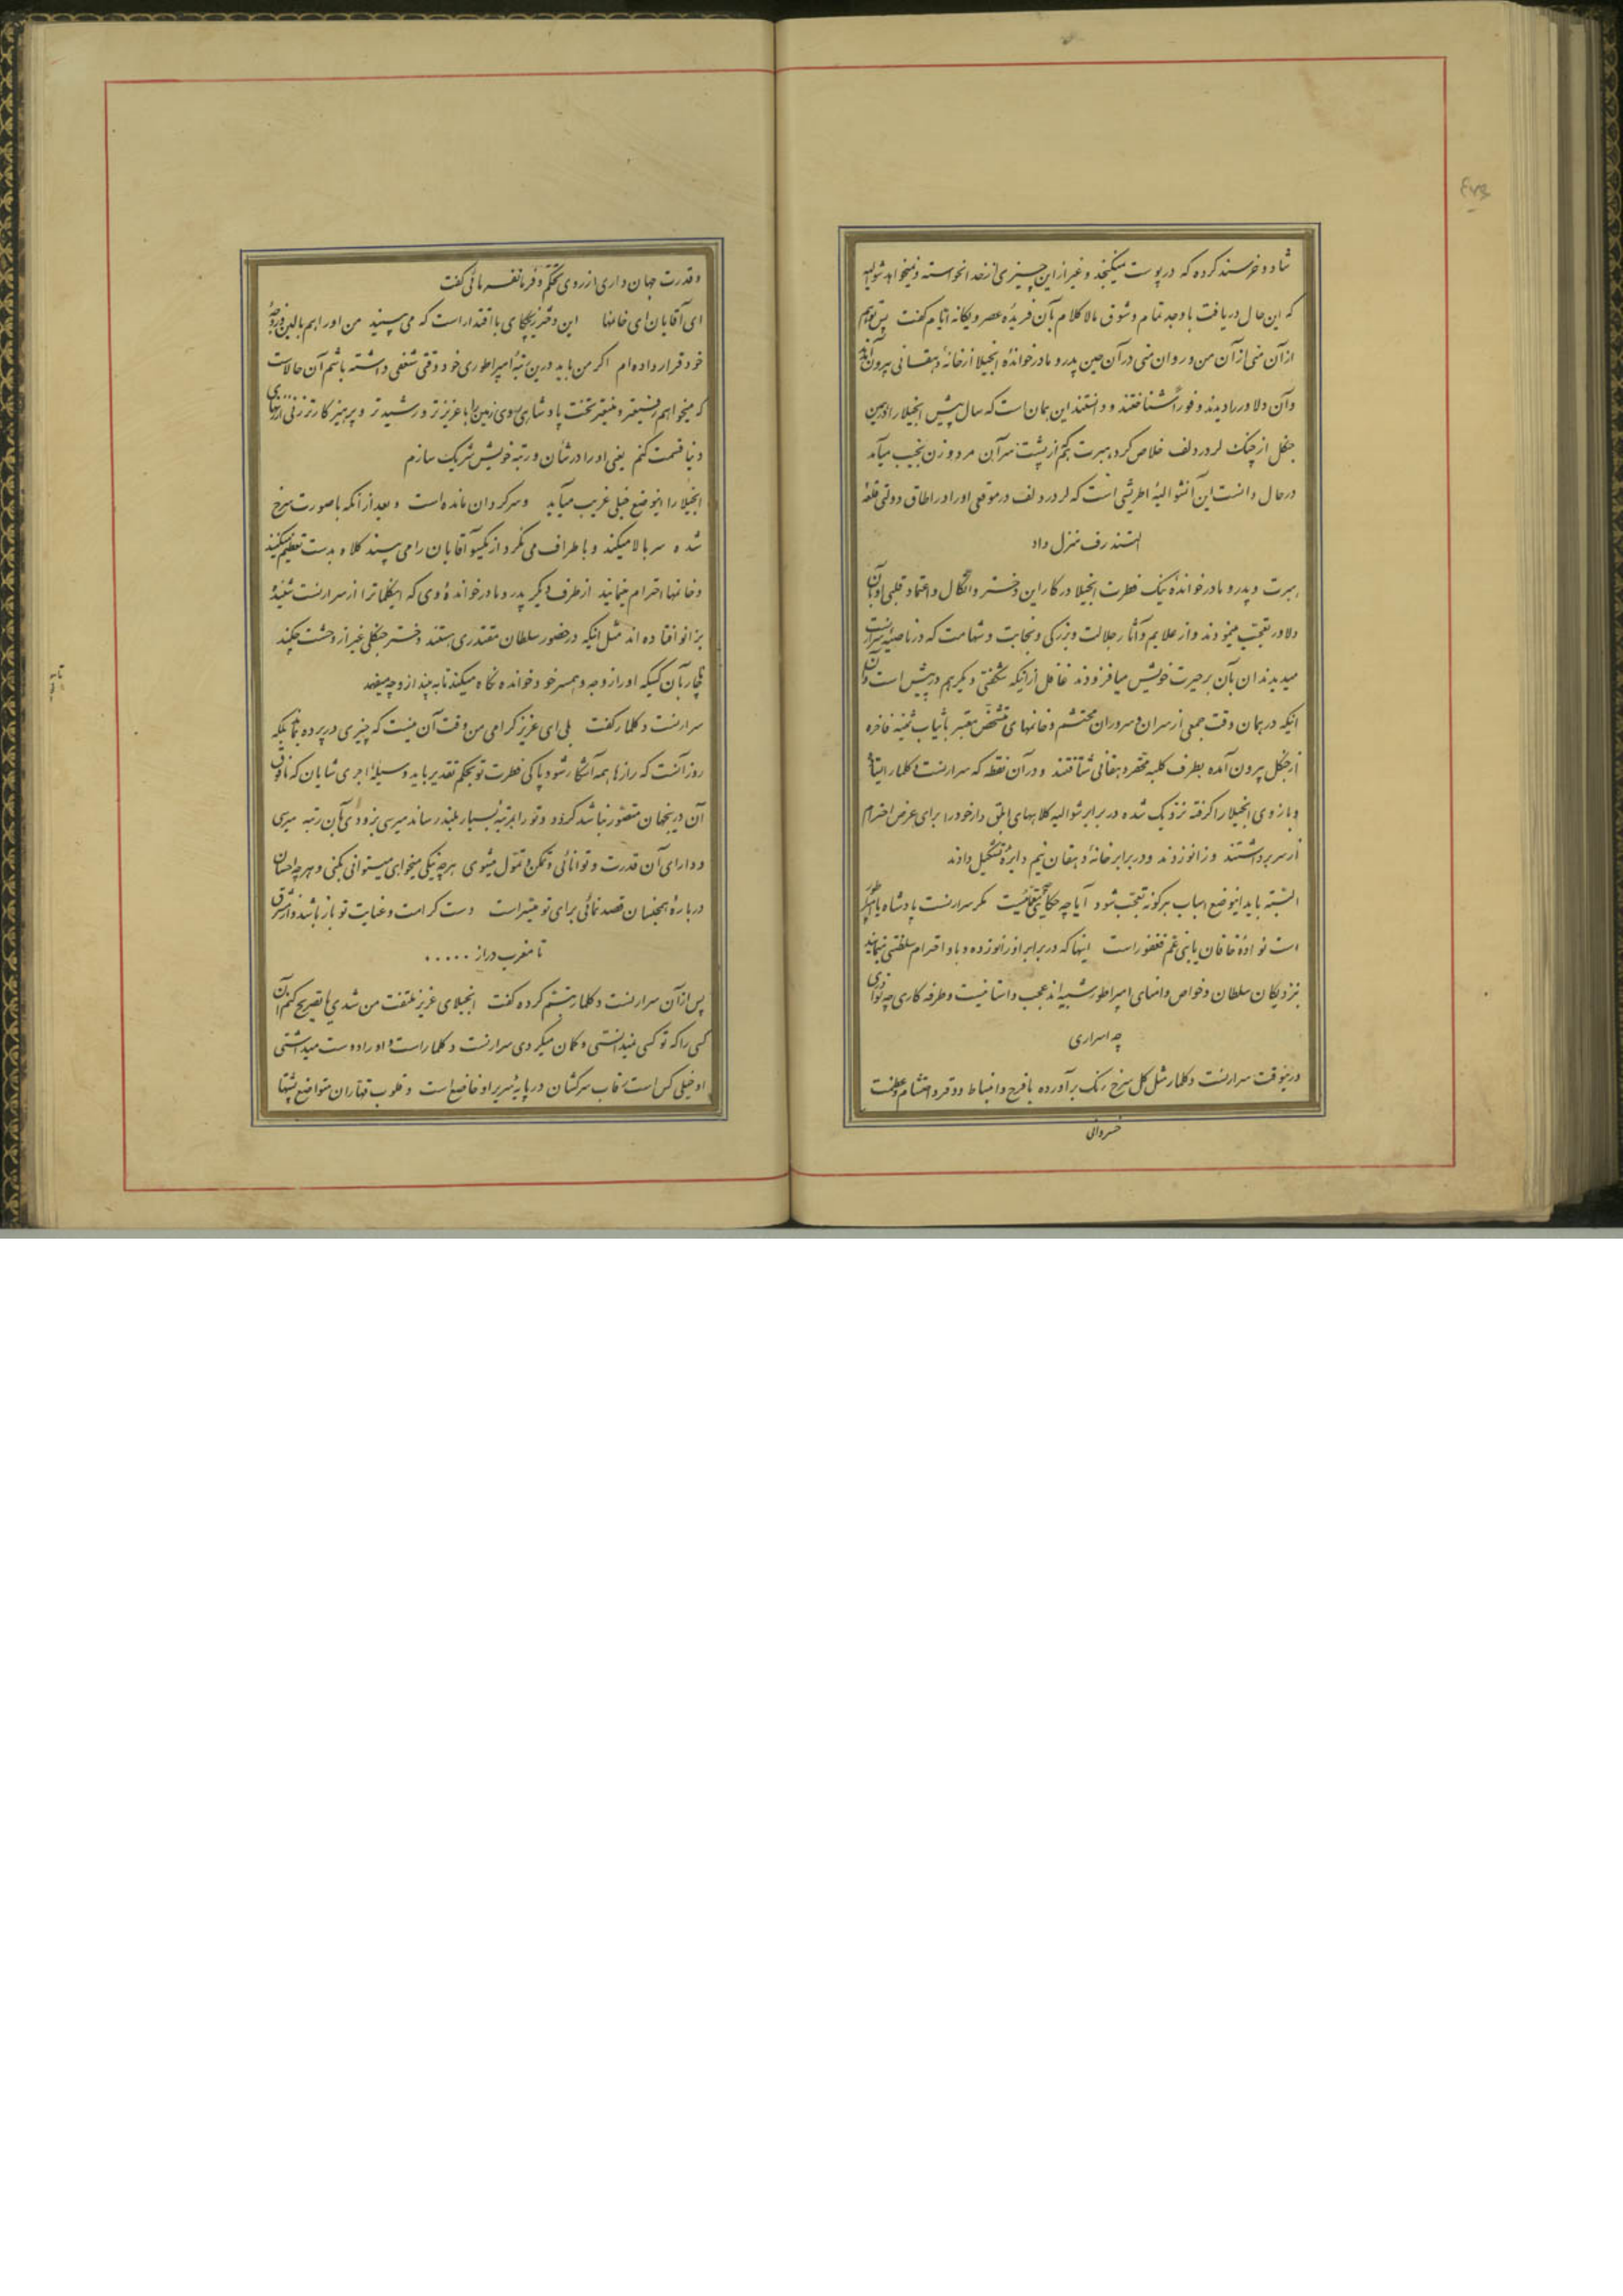 شاد و خرسند کرده که در پوست نمیگنجد و غیر از این چیزی از خدا نخواسته و نمیخواهد شوالیه
که این حال دریافت با وجد تمام و شوق مالاکلام بآن فریدهٔ عصر و یگانه ایام گفت پس تو هم
از آن منی از آن من و روان منی در آن حین پدر و مادر خواندهٔ انجیلا از خانهٔ دهقانی بیرون آمدند
و آن دلاور را دیدند و فوراً شناختند و دانستند این همان است که سال پیش انجیلا را در همین
جنگل از چنگ لرد ردلف خلاص کرد هبرت هم از پشت سر آن مرد و زن نجیب میآمد
در حال دانست این آن شوالیهٔ اطریشی است که لرد ردلف در موقعی او را در اطاق دولتی قلعهٔ
اشتندرف منزل داد
هبرت و پدر و مادر خواندهٔ نیک فطرت انجیلا در کار این دختر و اتکال و اعتماد قلبی او بآن
دلاور تعجب مینمودند و از علایم و آثار جلالت و بزرگی و نجابت و شهامت که در ناصیهٔ سرارنست
میدیدند آن بآن بر حیرت خویش میافزودند غافل از اینکه شگفتی دیگر هم در پیش است و آن
اینکه در همان وقت جمعی از سران و سروران محتشم و خانمهای متشخص معتبر با ثیاب ثمینه فاخره
از جنگل بیرون آمده بطرف کلبه محقر دهقانی شتافتند و در آن نقطه که سرارنست دکلمار ایستاده
و بازوی انجیلا را گرفته نزدیک شده در برابر شوالیه کلاههای ابلق دار خود را برای عرض احترام
از سر برداشتند و زانو زدند و در برابر خانهٔ دهقان نیم دایرهٔ تشکیل دادند
البته باید اینوضع اسباب هرگونه تعجب شود آیا چه حکایتی است مگر سرارنست پادشاه یا امپراطور
است نوادهٔ خاقان یا بنی عم فغفور است اینها که در برابر او زانو زده و باو احترام سلطنتی مینمایند
بنزدیکان سلطان و خواص و امنای امپراطور شبیه‌اند عجب داستانیست و طرفه کاری چه نوادری
چه اسراری
در اینوقت سرارنست دکلمار مثل گل سرخ رنگ برآورده با فرح و انبساط و وقر و احتشام و عظمت
خسروانی
و قدرت جهان داری از روی تحکم و فرمانفرمائی گفت
ای آقایان ای خانمها این دختر یکجای با اقتدار است که می‌بینید من او را همبالین و زوجهٔ
خود قرار داده‌ام اگر من باید درین رتبهٔ امپراطوری خود وقتی شعفی داشته باشم آن حالاست
که میخواهم رفیعتر و منیعتر تخت پادشاهی روی زمین را با عزیزتر و رشیدتر و پرهیزکارتر زنی از زنهای
دنیا قسمت کنم یعنی او را در شأن و رتبه خویش شریک سازم
انجیلا را اینوضع خیلی غریب میآید و سرگردان مانده است و بعد از آنکه با صورت سرخ
شده سر بالا میکند و باطراف می‌نگرد از یکسو آقایان را می‌بیند کلاه بدست تعظیم میکنند
و خانمها احترام مینمایند از طرف دیگر پدر و مادر خواندهٔ وی که این کلمات را از سرارنست شنیده
بزانو افتاده‌اند مثل اینکه در حضور سلطان مقتدری هستند دختر جنگلی غیر از وحشت چکند
ناچار بآن کسیکه او را زوجه و همسر خود خوانده نگاه میکند تا به بیند از وجه میفهمد
سرارنست دکلمار گفت بلی ای عزیز گرامی من وقت آن نیست که چیزی در پرده بماند بلکه
روز آنست که رازها همه آشکار شود پاکی فطرت تو بحکم تقدیر باید وسیلهٔ اجری شایان که مافوق
آن در جهان متصور نباشد گردد و تو را بمرتبهٔ بسیار بلند رساند میرسی بزودی بآن رتبه میرسی
و دارای آن قدرت و توانائی و تمکن و تمول میشوی هر چه نیکی میخواهی میتوانی بکنی و هر چه احسان
در بارهٔ همجنسان قصد نمائی برای تو میسر است دست کرامت و عنایت تو باز باشد و از مشرق
تا مغرب دراز . . . . .
پس از آن سرارنست دکلمار تبسم کرده گفت انجیلای عزیز ملتفت من شدی یا تصریح کنم آن
کسی را که تو کسی نمیدانستی و گمان میکردی سرارنست دکلمار است و او را دوست میداشتی
او خیلی کس است رقاب سرکشان در پایهٔ سریر او خاضع است و قلوب قهاران متواضع پشتها